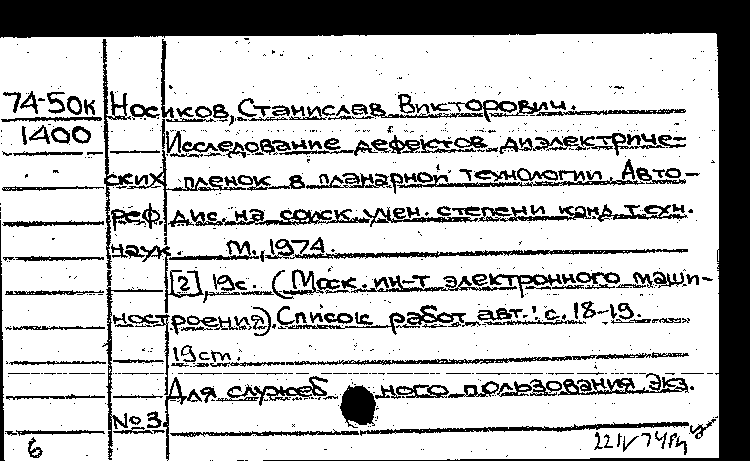 74-50к Носиков, Станислав Викторович.
1400 Исследование дефектов диэлектриче-
ских пленок в планарной технологии. Авто-
реф. дис. на соиск. учен. степени канд. техн.
наук. М., 1974.
[2], 19с. (Моск. ин-т электронного маши-
ностроения). Список работ авт.: с. 18-19.
19см.
Для служебного пользования Экз.
№ 3.
6